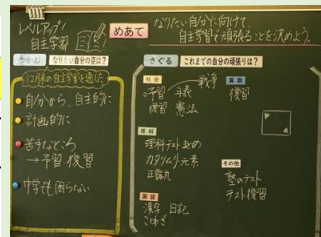 レベルアップ!
自主学習
めあて
なりたい自分に向けて、
自主学習で頑張ることを決めよう。
つかむ
なりたい自分の姿は?
12月末の自主学習を通して
自分から、自主的に
計画的に
苦手なところ
→予習 復習
中学でも困らない
さぐる
これまでの自分の頑張りは?
社会
予習
年表
戦争
復習
憲法
算数
復習
理科
理科テストまとめ
国語
漢字 日記
ことわざ
その他
塾のテスト
テスト復習